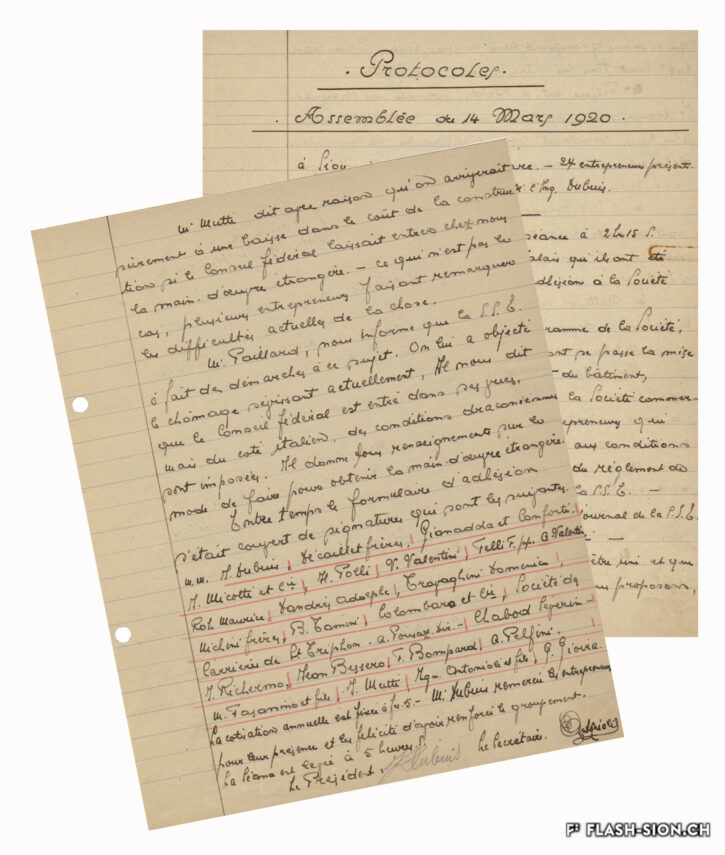 . Protocoles .
. Assemblée du 14 Mars 1920 .
à Sion
re. - 24 entrepreneurs présents.
l'Ing. Dubuis.
séance à 2h.15 s.
alais qu'ils ont été
adhésion à la Société
ramme de la Société,
ont se passe la mise
du bâtiment,
la Société commer-
epreneurs qui
aux conditions
du règlement de
la S.S.E. -
ournal de la S.S.E.
être uni et que
proposons,
M. Mutti dit avec raison qu'on arriverait
sûrement à une baisse dans le coût de la construc-
tion si le Conseil fédéral laissait entrer chez nous
la main-d'œuvre étrangère. - ce qui n'est pas le
cas, plusieurs entrepreneurs faisant remarquer
les difficultés actuelles de la chose.
M. Paillard, nous informe que la S.S.E.
à fait des démarches à ce sujet. On lui a objecté
le chômage sévissant actuellement, Il nous dit
que le Conseil fédéral est entré dans ses vues,
mais du coté italien, des conditions draconiennes
sont imposées. Il donne tous renseignements sur le
mode de faire pour obtenir la main d'œuvre étrangère.
Entre temps le formulaire d'adhésion
s'était couvert de signatures qui sont les suivantes.
M.M. J. Dubuis, Décaillet frères, Gianadda et Conforti.
J. Micotti et Cie, H. Polli, V. Valentini, Telli F. pp. A. Valentin
Roh Maurice, Dandrès Adolphe, Travaghini Domenico,
Michini frères, B. Tamini, Colombara et Cie, Société des
Carrières de St Triphon. - Chabod Séverin -
J. Richermo, Jean Bessero, F. Bompard, A. Pelfini.
M. Fasanino et fils, J. Mutti, Ign. Antonioli et fils, G. Gioira
La cotisation annuelle est fixée à fr. 5. - M. Dubuis remercie les entrepreneurs
pour leur présence et les félicite d'avoir renforcé le groupement.
La séance est levée à 5 heures.
Le Président. J. Dubuis Le Secrétaire.
FLASH-SION.CH